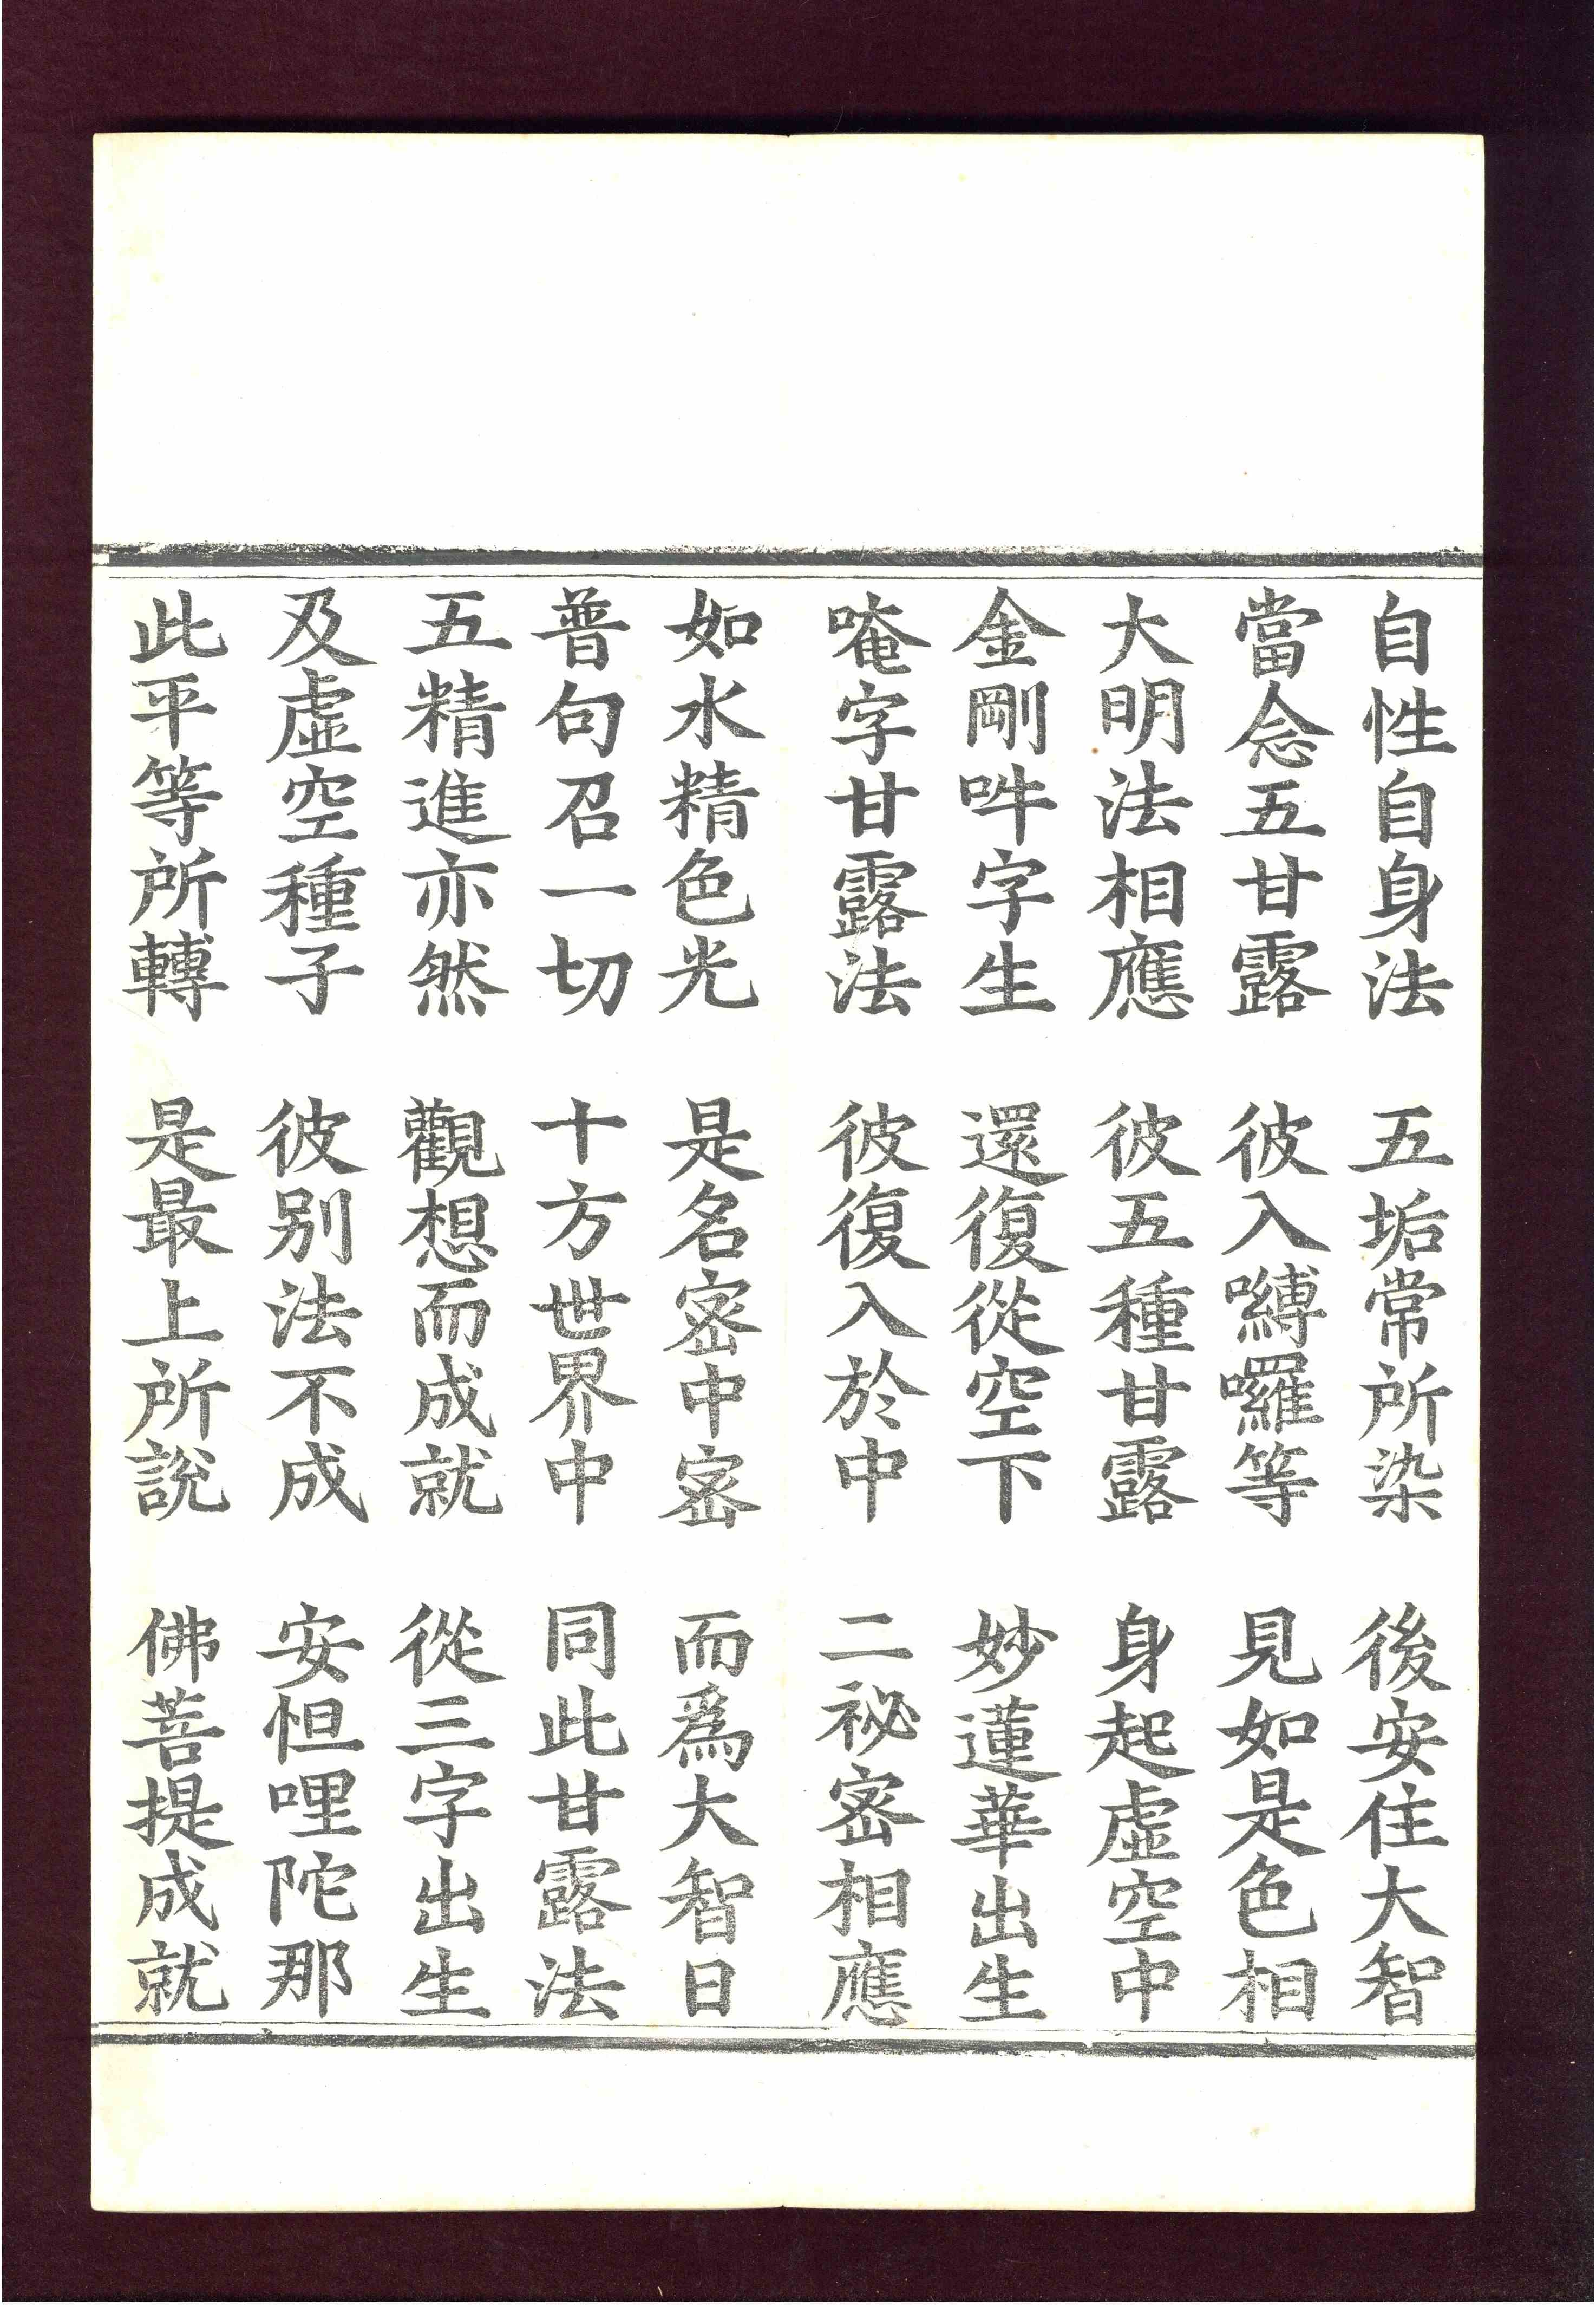 自性自身法　五垢常所染　後安住大智
當念五甘露　彼入嚩囉等　見如是色相
大明法相應　彼五種甘露　身起虛空中
金剛吽字生　還復從空下　妙蓮華出生
唵字甘露法　彼復入於中　二祕密相應
如水精色光　是名密中密　而為大智日
普句召一切　十方世界中　同此甘露法
五精進亦然　觀想而成就　從三字出生
及虛空種子　彼別法不成　安怛哩陀那
此平等所轉　是最上所說　佛菩提成就